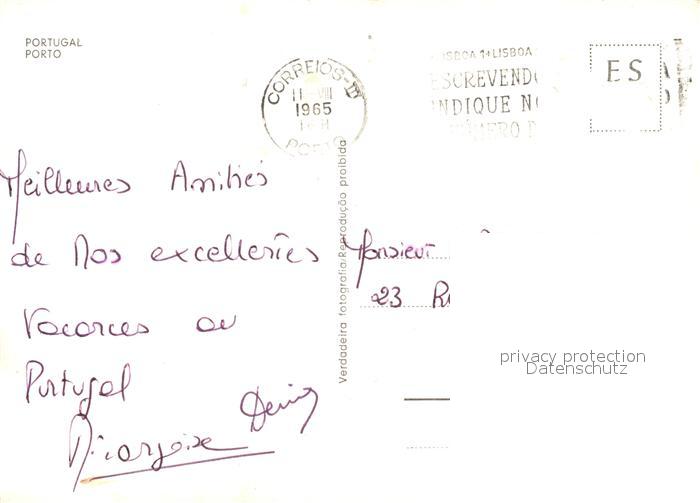 PORTUGAL
PORTO
CORREIOS-
1965
PORTO
LISBOA 1+LISBOA
ESCREVENDO
INDIQUE
ES
Meilleures Amitiés
de Nos excellentes
Vacances au
Portugal
Denis
Verdadeira fotografia/Reprodução proibida
Monsieur
23
privacy protection
Datenschutz